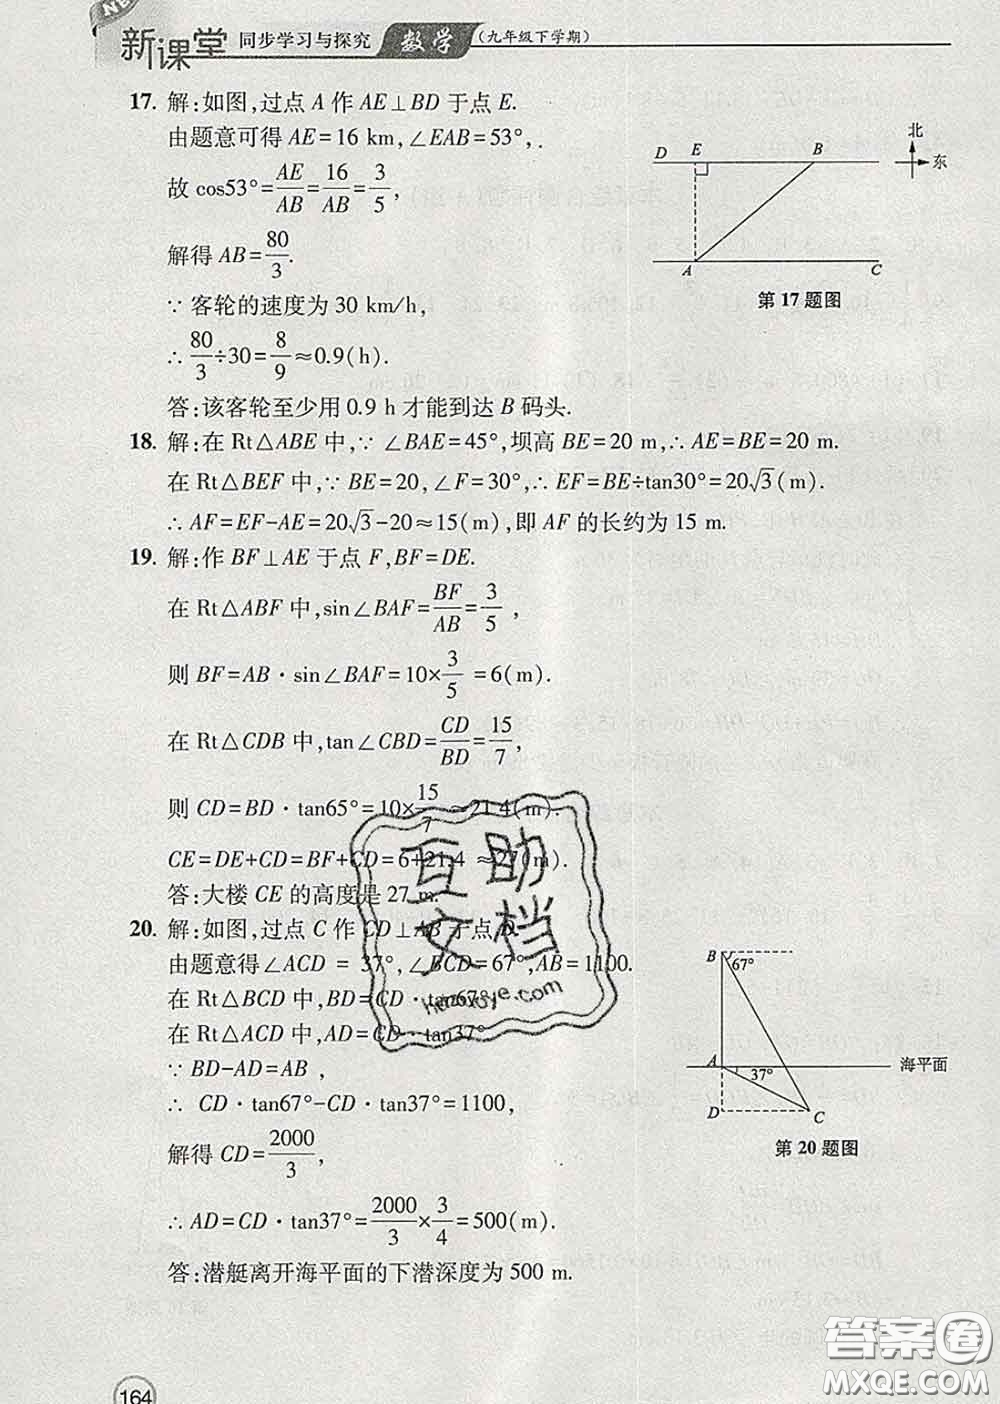 NEW
新课堂 同步学习与探究 数学 (九年级下学期)
17. 解:如图,过点 A 作 AE⊥BD 于点 E.
由题意可得 AE=16 km,∠EAB=53°,
故 cos53°=AE/AB=16/AB=3/5,
解得 AB=80/3.
∵ 客轮的速度为 30 km/h,
∴ 80/3÷30=8/9≈0.9(h).
答:该客轮至少用 0.9 h 才能到达 B 码头.
D E B 北 东
A C
第17题图
18. 解:在 Rt△ABE 中,∵ ∠BAE=45°,坝高 BE=20 m,∴ AE=BE=20 m.
在 Rt△BEF 中,∵ BE=20,∠F=30°,∴ EF=BE÷tan30°=20√3(m).
∴ AF=EF-AE=20√3-20≈15(m),即 AF 的长约为 15 m.
19. 解:作 BF⊥AE 于点 F,BF=DE.
在 Rt△ABF 中,sin∠BAF=BF/AB=3/5 ,
则 BF=AB·sin∠BAF=10×3/5=6(m).
在 Rt△CDB 中,tan∠CBD=CD/BD=15/7,
则 CD=BD·tan65°=10×15/7≈21.4(m).
CE=DE+CD=BF+CD=6+21.4≈27(m).
答:大楼 CE 的高度是 27 m.
20. 解:如图,过点 C 作 CD⊥AB 于点 D.
由题意得∠ACD = 37°,∠BCD=67°,AB=1100.
在 Rt△BCD 中,BD=CD·tan67°
在 Rt△ACD 中,AD=CD·tan37°
∵ BD-AD=AB ,
∴ CD·tan67°-CD·tan37°=1100,
解得 CD=2000/3,
∴ AD=CD·tan37°=2000/3×3/4=500(m).
答:潜艇离开海平面的下潜深度为 500 m.
B 67°
A 37° 海平面
D C
第20题图
互助
文档
答案卷
MXQE.COM
164